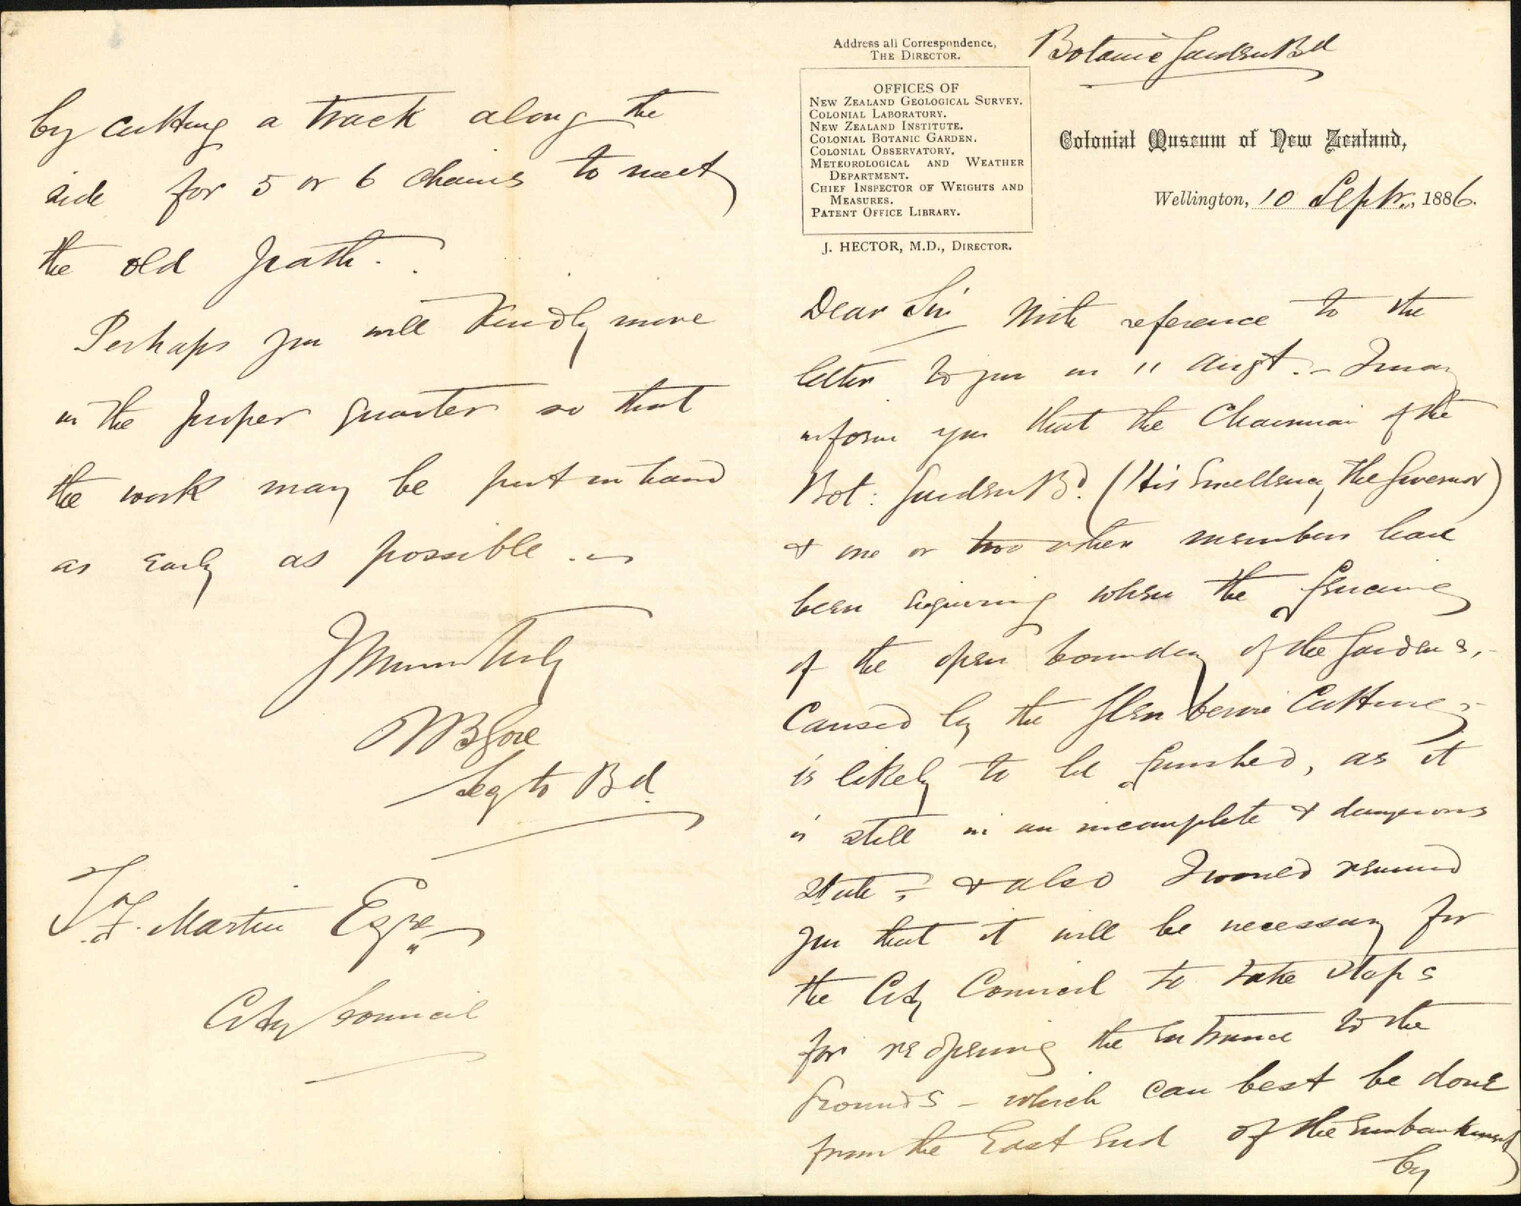 Address all Correspondence,
THE DIRECTOR.
OFFICES OF
NEW ZEALAND GEOLOGICAL SURVEY.
COLONIAL LABORATORY.
NEW ZEALAND INSTITUTE.
COLONIAL BOTANIC GARDEN.
COLONIAL OBSERVATORY.
METEOROLOGICAL AND WEATHER
DEPARTMENT.
CHIEF INSPECTOR OF WEIGHTS AND
MEASURES.
PATENT OFFICE LIBRARY.
J. HECTOR, M.D., DIRECTOR.
Botanic Garden Bd
Colonial Museum of New Zealand,
Wellington, 10 Sept. 1886.
Dear Sir With reference to the
letter to you on 11 Augt. - I may
inform you that the Chairman of the
Bot: Garden Bd. (His Excellency The Governor)
& one or two other members have
been enquiring when the fencing
of the open boundary of the Gardens,
caused by the Glenbervie Cutting
is likely to be finished, as it
is still in an incomplete & dangerous
state - & also I would remind
you that it will be necessary for
the City Council to take steps
for reopening the entrance to the
Grounds - which can best be done
from the East End of the embankment
by
by cutting a track along the
side for 5 or 6 chains to meet
the old path.
Perhaps you will kindly move
in the proper quarter so that
the work may be put in hand
as early as possible.
Yours truly
R B Gore
Secy to Bd.
F. Martin Esqre
City Council